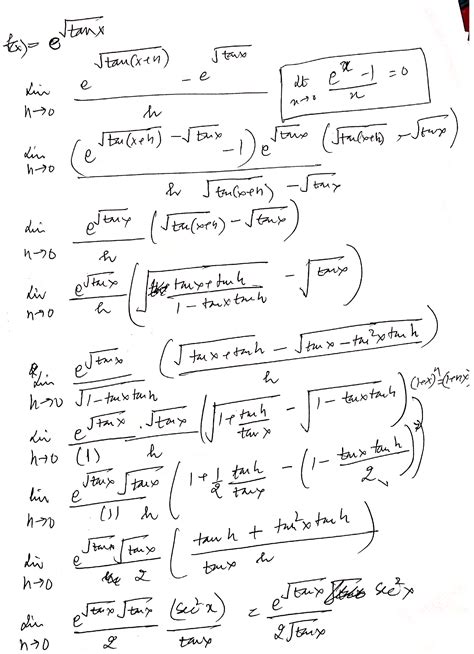 f(x) = e^√tanx
lim h→0 (e^√tan(x+h) − e^√tanx) / h
lt x→0 (e^x − 1)/x = 0
lim h→0 (e^(√tan(x+h) − √tanx) − 1) e^√tanx (√tan(x+h) − √tanx) / h √tan(x+h) − √tanx
lim h→0 e^√tanx / h (√tan(x+h) − √tanx)
lim h→0 e^√tanx / h (√((tanx + tanh)/(1 − tanx tanh)) − √tanx)
lim h→0 e^√tanx / √(1 − tanx tanh) (√(tanx + tanh) − √(tanx − tan²x tanh)) / h
(1+x)^n = (1+nx)
lim h→0 e^√tanx · √tanx / (1) h (√(1 + tanh/tanx) − √(1 − tanx tanh))
lim h→0 e^√tanx √tanx / (1) h (1 + 1/2 tanh/tanx − (1 − tanx tanh / 2))
lim h→0 e^√tanx √tanx / 2 ((tanh + tan²x tanh) / tanx h)
lim h→0 e^√tanx √tanx / 2 (sec²x)/tanx = e^√tanx sec²x / 2√tanx